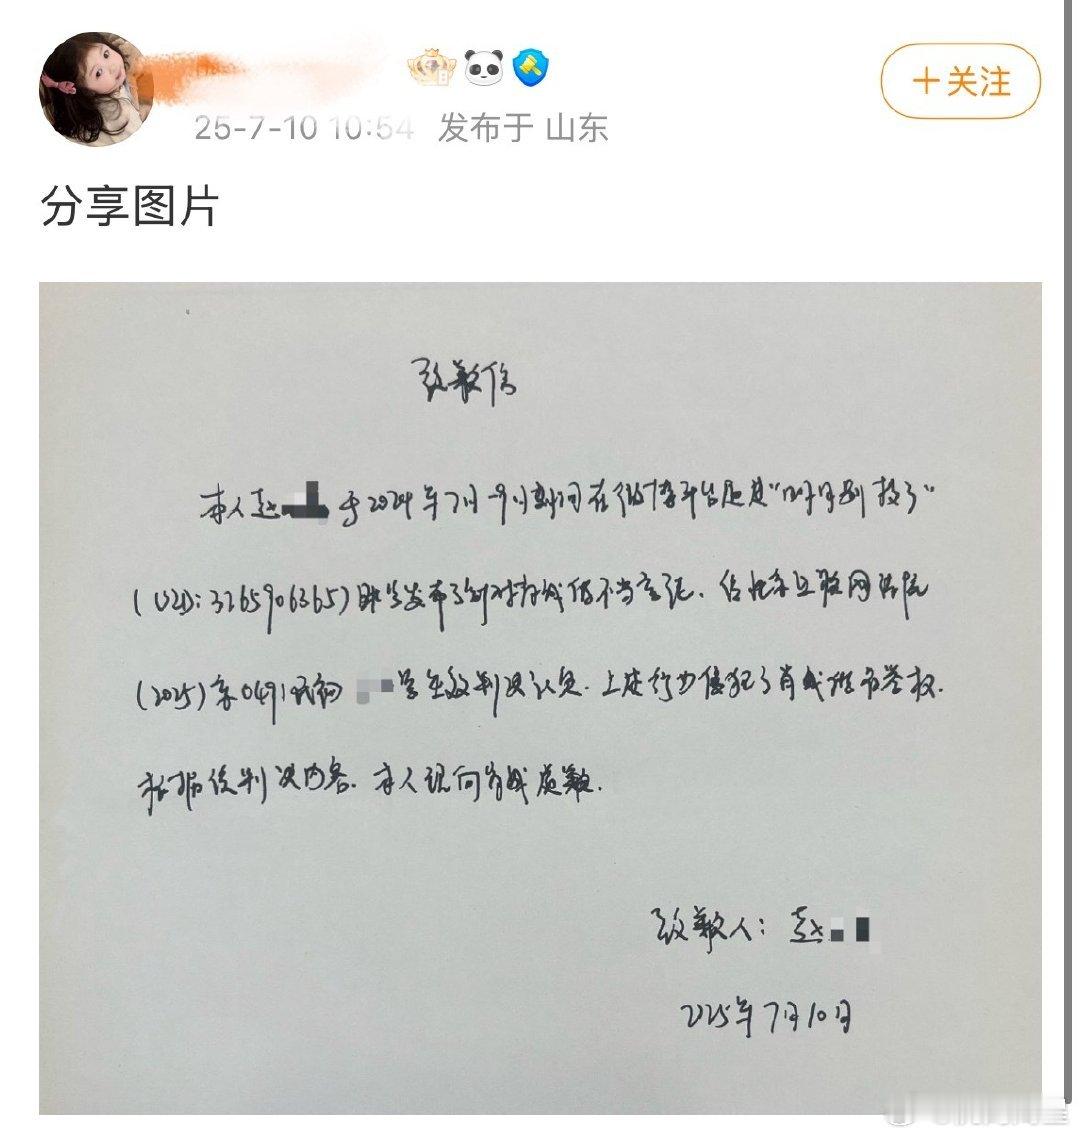 25-7-10 10:54 发布于 山东
+关注
分享图片
致歉信
本人赵 于2024年7月-9月期间在微博平台通过"明月别枝了"
(UID:3265906365)账号发布了针对肖战的不当言论,经北京互联网法院
(2025)京0491民初 号生效判决认定,上述行为侵犯了肖战的名誉权.
根据该判决内容,本人现向肖战道歉.
致歉人:赵
2025年7月10日